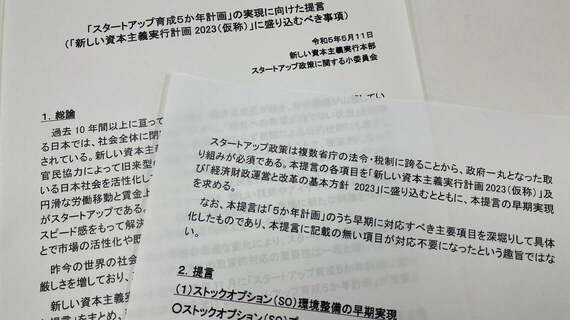 「スタートアップ育成5か年計画」の実現に向けた提言
(「新しい資本主義実行計画 2023(仮称)」に盛り込むべき事項)
令和5年5月11日
新しい資本主義実行本部
スタートアップ政策に関する小委員会
1. 総論
過去 10 年間以上に亘って
る日本では、社会全体に閉
されている。新しい資本主
官民協力によって旧来型の
いる日本社会を活性化して
円滑な労働移動と賃金上
がスタートアップである。
スピード感をもって解決
とで市場の活性化や既
昨今の世界の社会
厳しさを増しており、
新しい資本主
スタートアップ政策は複数省庁の法令・税制に跨ることから、政府一丸となった取
り組みが必須である。本提言の各項目を「新しい資本主義実行計画 2023(仮称)」及
び「経済財政運営と改革の基本方針 2023」に盛り込むとともに、本提言の早期実現
を求める。
なお、本提言は「5か年計画」のうち早期に対応すべき主要項目を深掘りして具体
化したものであり、本提言に記載の無い項目が対応不要になったという趣旨ではな
い。
2. 提言
(1)ストックオプション(SO)環境整備の早期実現
〇ストックオプション(SO)プ